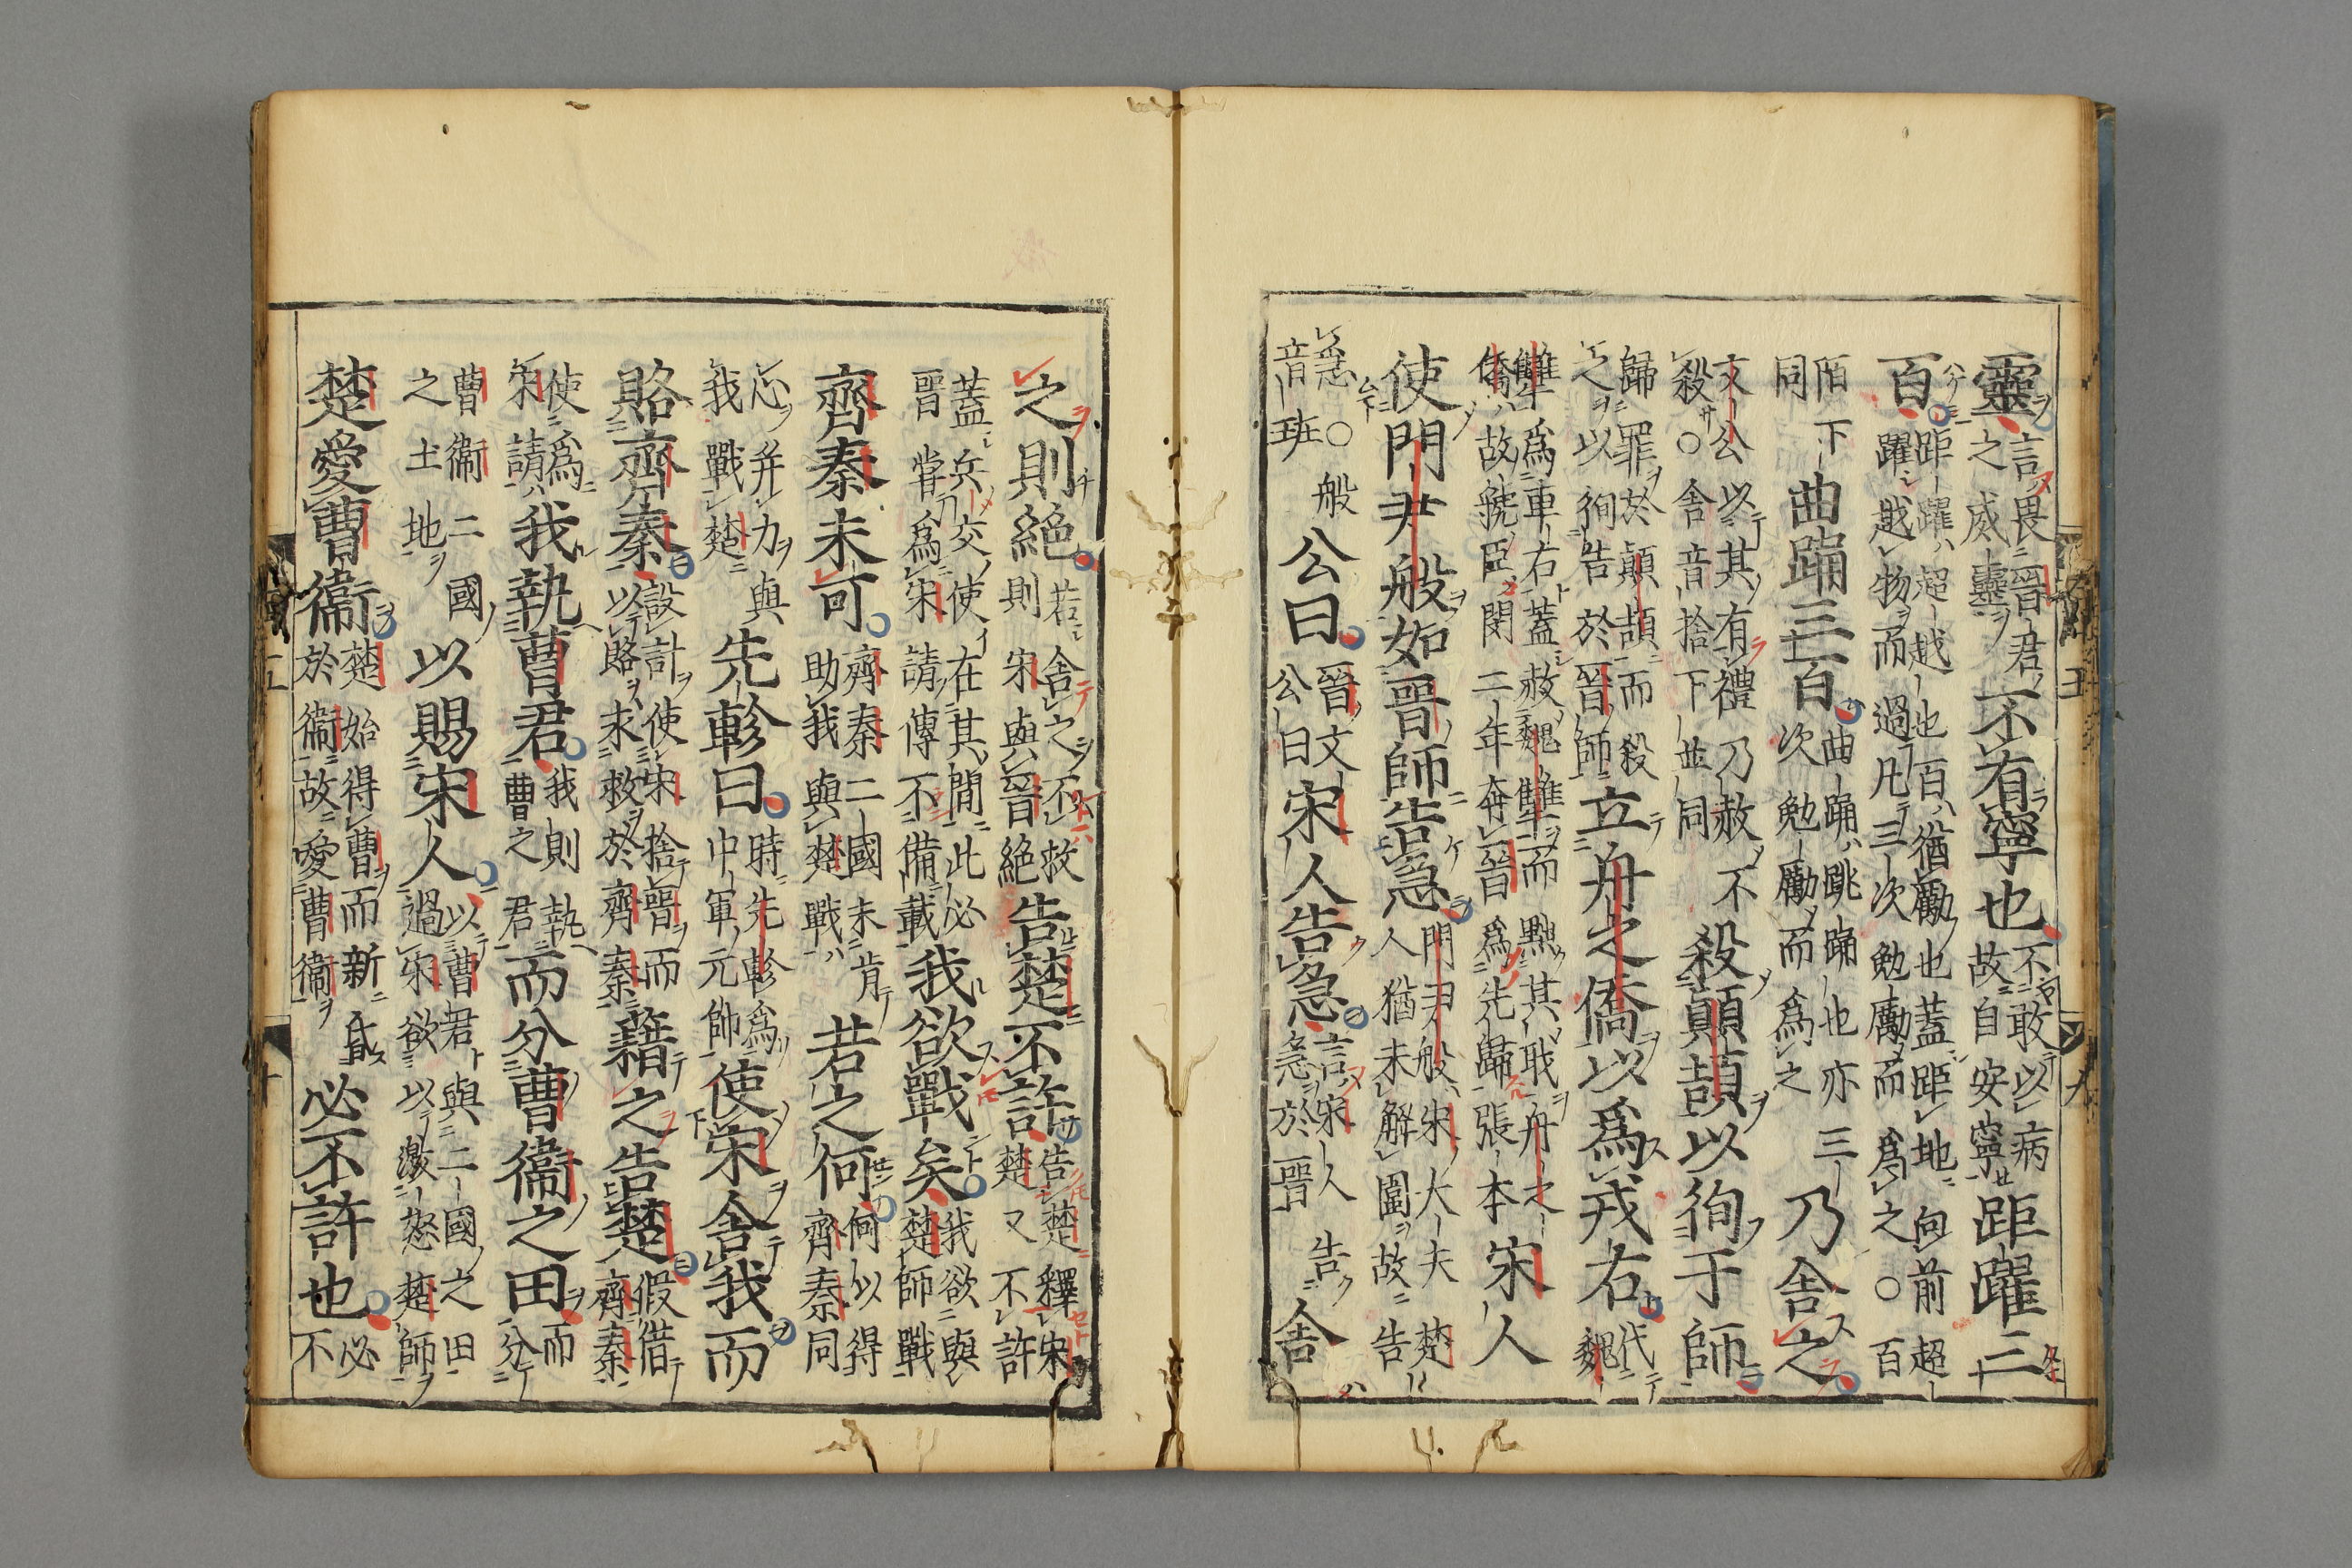 靈言畏晉君之威靈不有寧也不敢以病故自安寧距躍三
百距躍超越也百猶勵也蓋距地向前超躍越物而過凡三次勉勵而爲之○百
陌下同曲踊三百曲踊跳踊也亦三次勉勵而爲之乃舍之
文公以其有禮乃赦不殺○舍音捨下並同殺顛頡以徇于師
歸罪於顛頡而殺之以徇告於晉師立舟之僑以爲戎右代魏
犨爲車右蓋赦魏犨而黜其職舟之僑故虢臣閔二年奔晉爲先歸張本宋人
使門尹般如晉師告急門尹般宋大夫楚人猶未解圍故告
急○般音班公曰晉文公曰宋人告急言宋人告急於晉舍
之則絕若舍之不救則宋與晉絕告楚不許告楚釋宋楚又不許
蓋兵交使在其間此必晉嘗爲宋請傳不備載我欲戰矣我欲與楚師戰
齊秦未可齊秦二國未肯助我與楚戰若之何何以得齊秦同
心并力與我戰楚先軫曰時先軫爲中軍元帥使宋舍我而
賂齊秦設計使宋捨晉而以賂求救於齊秦藉之告楚假借齊秦
使爲宋請我執曹君我則執曹之君而分曹衞之田而分
曹衞二國之土地以賜宋人以曹君與二國之田過宋欲以激怒楚師
楚愛曹衞楚始得曹而新昏於衞故愛曹衞必不許也必不